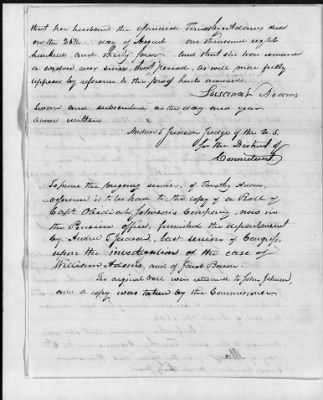 that her husband the aforesaid Timothy Adams died
on the 28th day of August one thousand eight
hundred and thirty four and that she has remained
a widow ever since that period, as will more fully
appear by reference to the proof hereto annexed.
Susanah Adams
Sworn and subscribed on the day and year
above written
Andrew T Judson Judge of the U.S.
for the District of
Connecticut
To prove the foregoing service, of Timothy Adams,
reference is to be had to the copy of a Roll of
Capt. Obadiah Johnson's Company, now in
the Pension office, furnished the department
by Andrew T. Judson, last session of Congress,
upon the investigation of the case of
William Adams, and of Jacob Bacon.
The original roll was returned to John Johnson,
and a copy was taken by the Commissioner